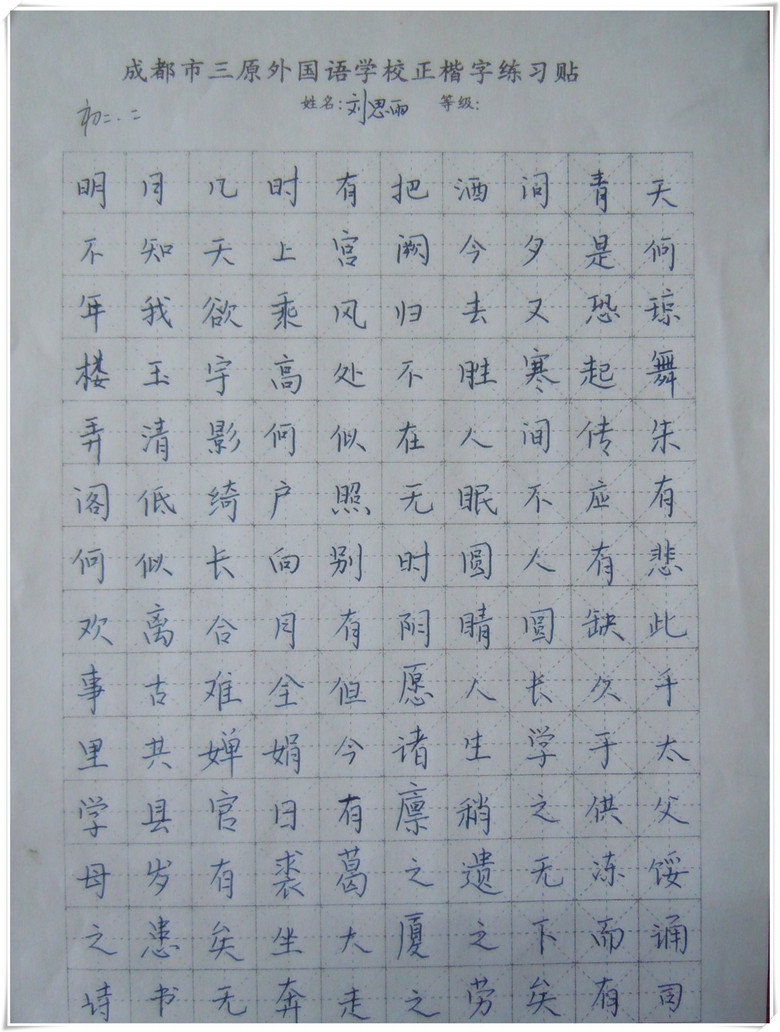 成都市三原外国语学校正楷字练习贴
初二.二 姓名:刘思雨 等级:
明月几时有把酒问青天
不知天上宫阙今夕是何
年我欲乘风归去又恐琼
楼玉宇高处不胜寒起舞
弄清影何似在人间传朱
阁低绮户照无眠不应有
何似长向别时圆人有悲
欢离合月有阴晴圆缺此
事古难全但愿人长久千
里共婵娟今诸生学于太
学县官日有廪稍之供父
母岁有裘葛之遗无冻馁
之患矣坐大厦之下而诵
诗书无奔走之劳矣有司